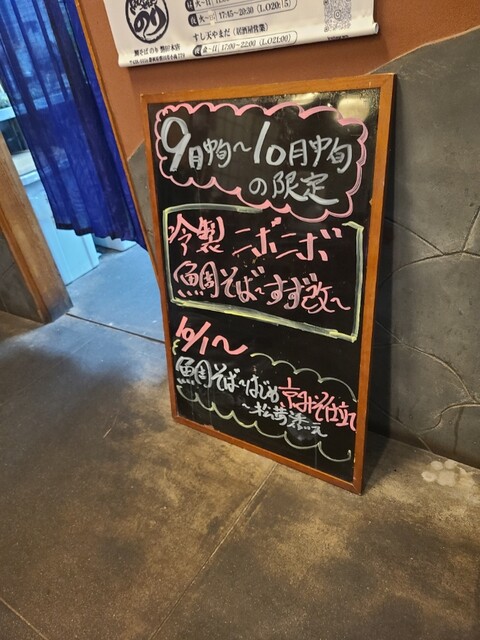 火~日 17:45~20:30 (L.O20:15)
すし天やまだ(居酒屋営業)
夜 金~日 17:00~22:00 (L.O21:00)
9月中旬~10月中旬
の限定
冷製 ニボニボ
鯛そば~すず改~
10/1~
鯛そば~はじめ 京みそ仕立て
~松茸添え